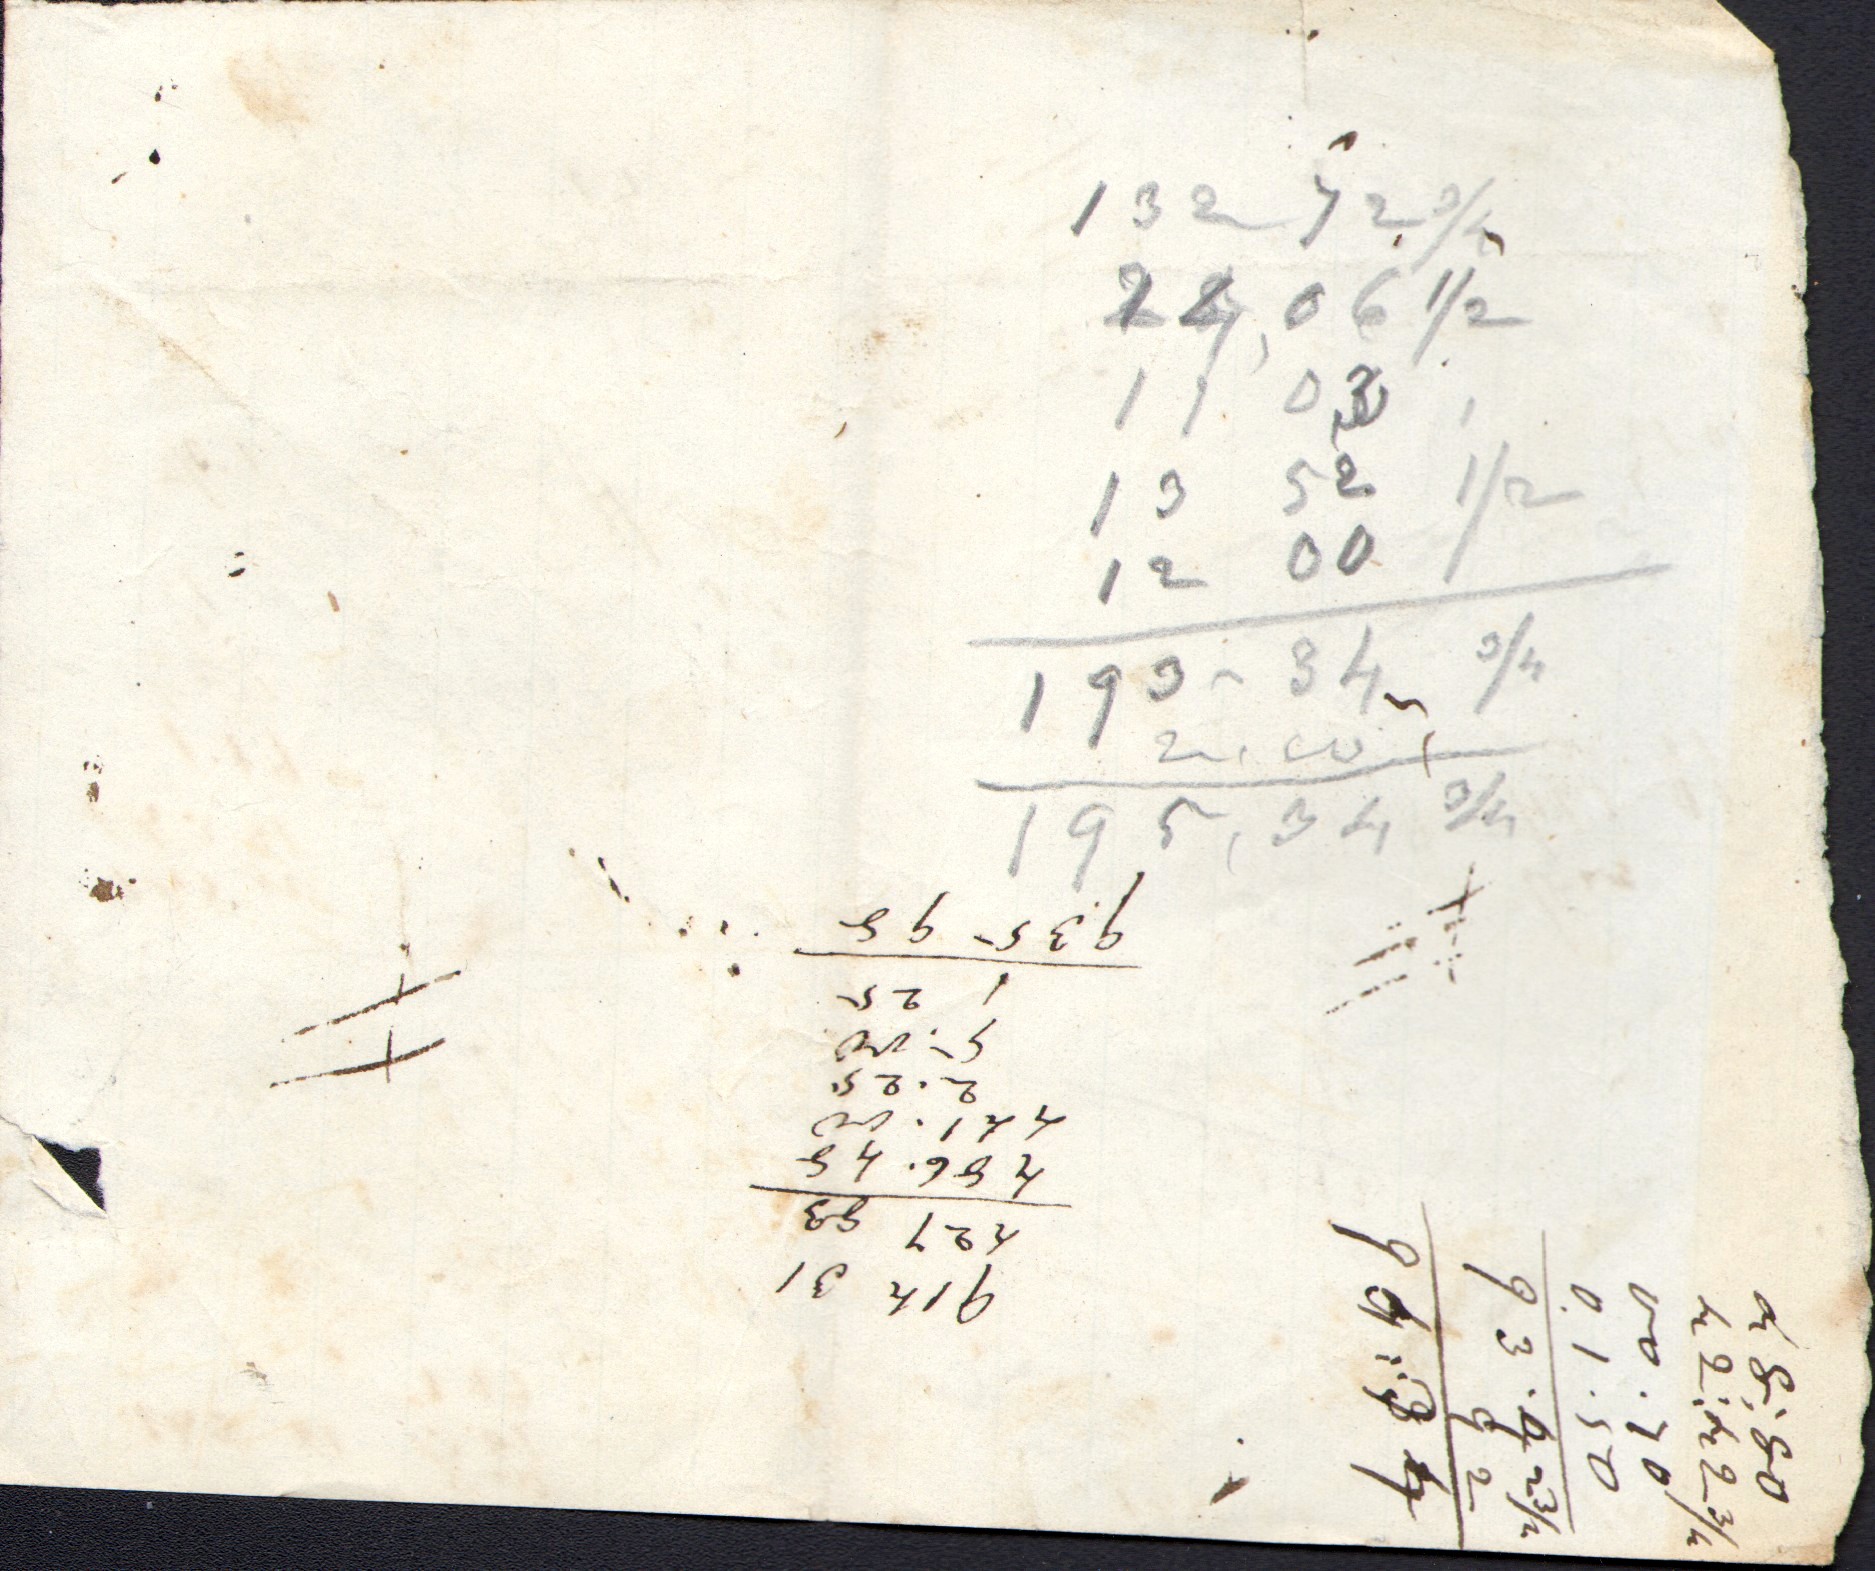 132 72 3/4
24,06 1/2
11 03 1
13 52 1/2
12 00
193-34 3/4
2.00
195,34 3/4
914 31
427 83
486.48
441.00
2.25
5.00
1 25
935 98
48.80
42.42 3/4
00.70
0.1.50
93.42 3/4
92
94.34